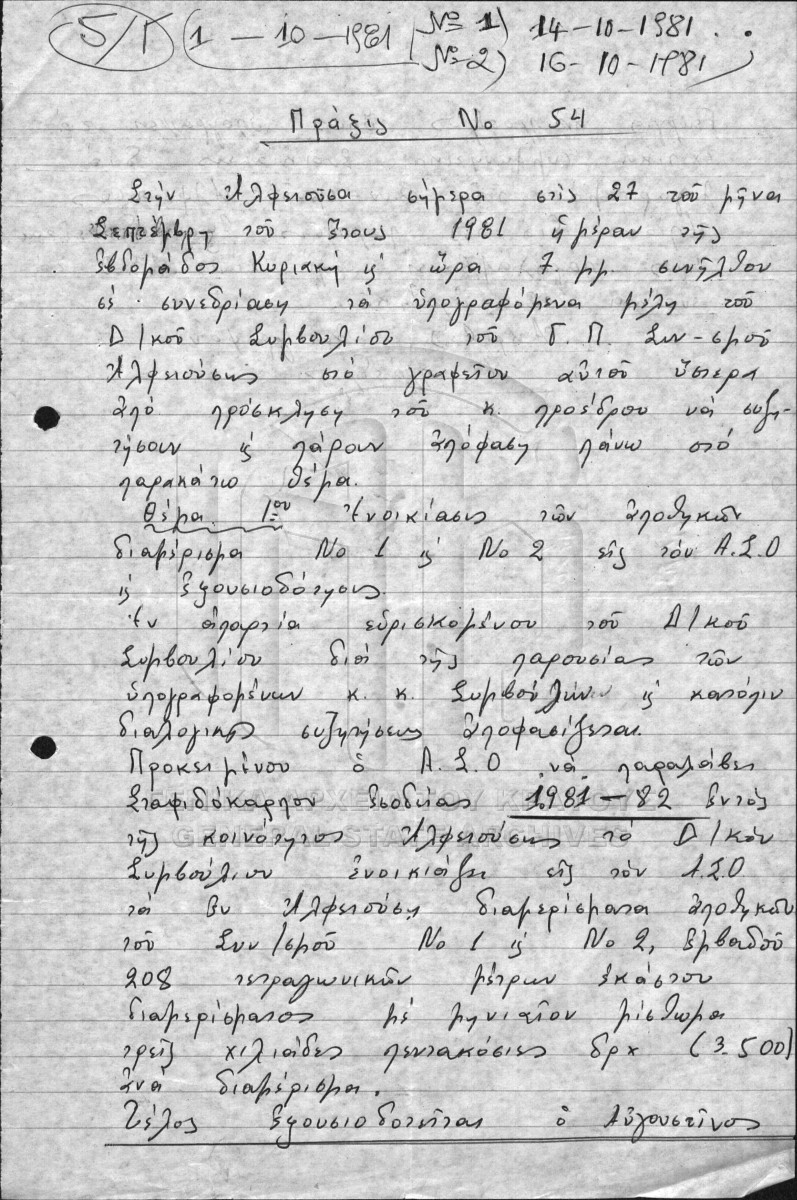 5/Γ (1 - 10 - 1981 (№ 1) 14-10-1981.
№ 2) 16-10-1981
Πράξις Νο 54
Στὴν Ἀλφειοῦσα σήμερα στὶς 27 τοῦ μῆνα
Σεπτέμβρη τοῦ ἔτους 1981 ἡμέραν τῆς
ἑβδομάδος Κυριακή ϗ ὥρα 7 μμ συνῆλθον
σὲ συνεδρίαση τὰ ὑπογραφόμενα μέλη τοῦ
Δ/κοῦ Συμβουλίου τοῦ Γ. Π. Συν-σμοῦ
Ἀλφειούσης στὸ γραφεῖον αὐτοῦ ὕστερα
ἀπὸ πρόσκληση τοῦ κ. προέδρου νὰ συζη-
τήσουν ϗ πάρουν ἀπόφαση πάνω στὸ
παρακάτω θέμα.
Θέμα 1ον Ἐνοικίασις τῶν ἀποθηκῶν
διαμέρισμα Νο 1 ϗ Νο 2 εἰς τὸν Α.Σ.Ο
ϗ ἐξουσιοδότησις.
Ἐν ἀπαρτία εὑρισκομένου τοῦ Δ/κοῦ
Συμβουλίου διὰ τῆς παρουσίας τῶν
ὑπογραφομένων κ. κ. Συμβούλων ϗ κατόπιν
διαλογικῆς συζητήσεως ἀποφασίζεται.
Προκειμένου ὁ Α.Σ.Ο νὰ παραλάβει
Σταφιδόκαρπον ἐσοδείας 1981-82 ἐντὸς
τῆς κοινότητος Ἀλφειούσης τὸ Δ/κὸν
Συμβούλιον ἐνοικιάζει εἰς τὸν Α.Σ.Ο
τὰ ἐν Ἀλφειούσῃ διαμερίσματα ἀποθηκῶν
τοῦ Συν/σμοῦ Νο 1 ϗ Νο 2, ἐμβαδοῦ
208 τετραγωνικῶν μέτρων ἑκάστου
διαμερίσματος μὲ μηνιαῖον μίσθωμα
τρεῖς χιλιάδες πεντακόσιες δρχ (3.500)
ἀνὰ διαμέρισμα.
Τέλος ἐξουσιοδοτεῖται ὁ Αὐγουστῖνος
ΓΕΝΙΚΑ ΑΡΧΕΙΑ ΤΟΥ ΚΡΑΤΟΥΣ
GENERAL STATE ARCHIVES